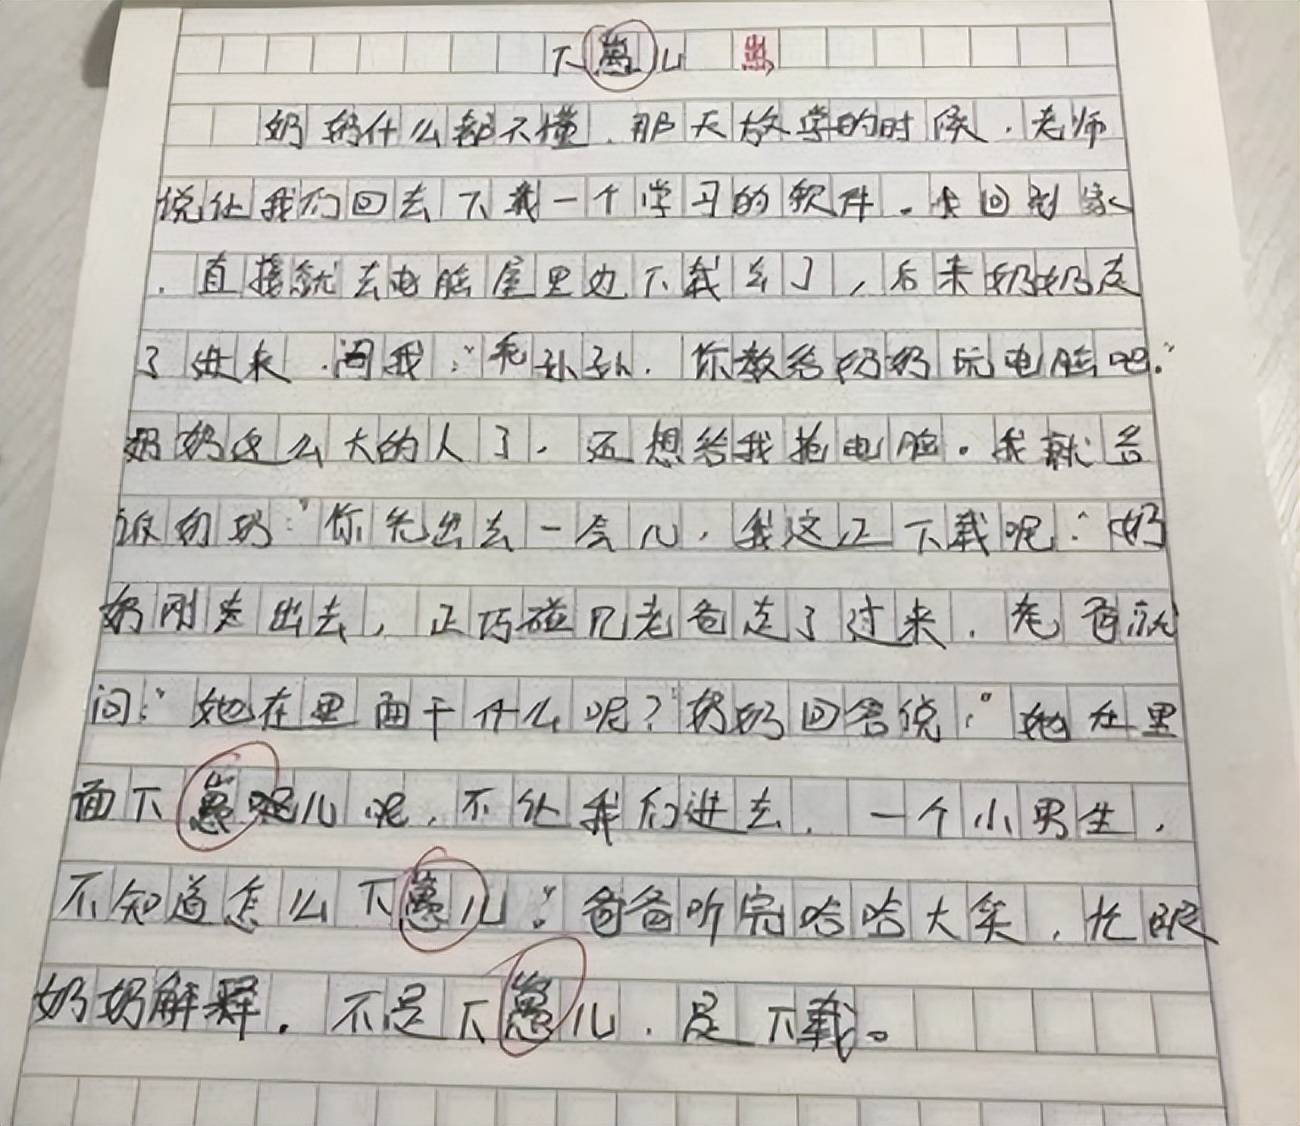 下崽儿 崽
奶奶什么都不懂.那天放学的时候.老师
说让我们回去下载一个学习的软件.我回到家
.直接就去电脑屋里边下载去了,后来奶奶走
了进来.问我:"乖孙孙.你教给奶奶玩电脑吧."
奶奶这么大的人了.还想给我抢电脑。我就告
诉奶奶:"你先出去一会儿,我这正下载呢."奶
奶刚走出去,正巧碰见老爸走了过来.老爸就
问:"她在里面干什么呢?"奶奶回答说:"她在里
面下崽儿呢,不让我们进去.一个小男生,
不知道怎么下崽儿."爸爸听完哈哈大笑,忙跟
奶奶解释.不是下崽儿.是下载。